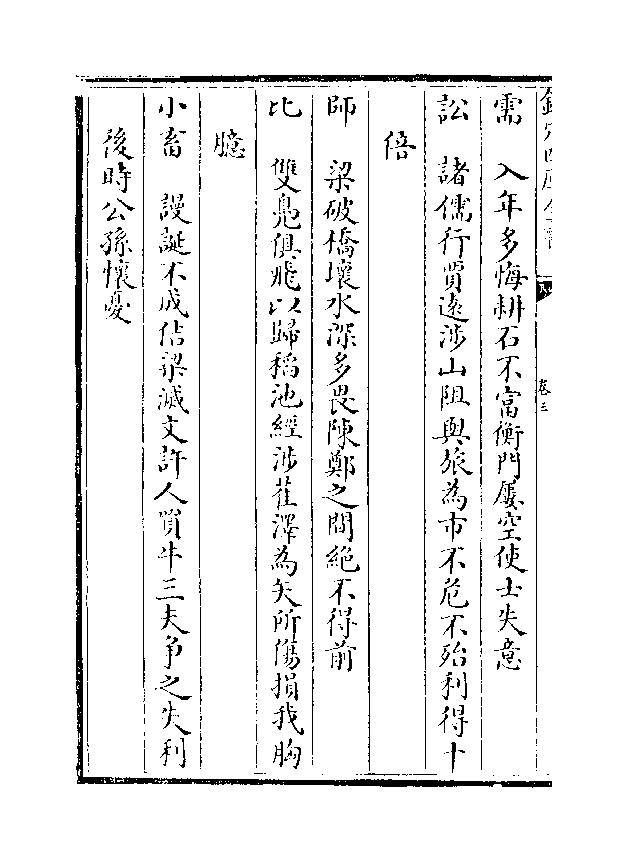 需　入年多悔耕石不富衡門屢空使士失意
訟　諸儒行賈遠涉山阻與旅為市不危不殆利得十
倍
師　梁破橋壞水深多畏陳鄭之間絶不得前
比　雙鳧俱飛以歸稻池經涉萑澤為矢所傷損我胸
臆
小畜　謾誕不成倍梁滅文許人買牛三夫爭之失利
後時公孫懷憂
卷三